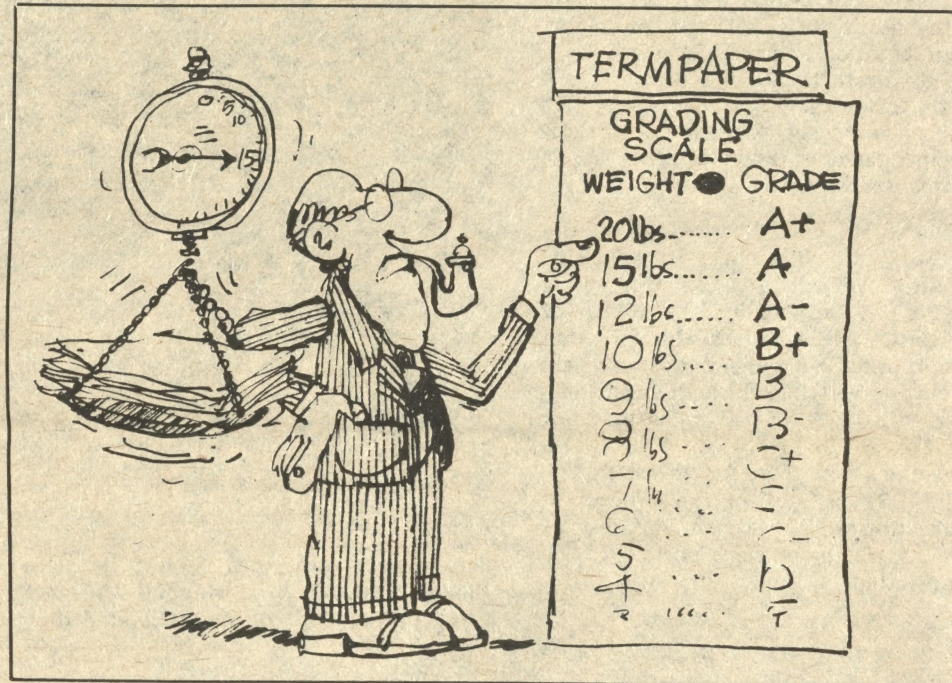 TERM PAPER
GRADING
SCALE
WEIGHT ● GRADE
20 lbs........ A+
15 lbs........ A
12 lbs...... A-
10 lbs .... B+
9 lbs .... B
8 lbs .. B-
7 lbs .. C+
6 ....
5 .... D
4
0 5 10
15